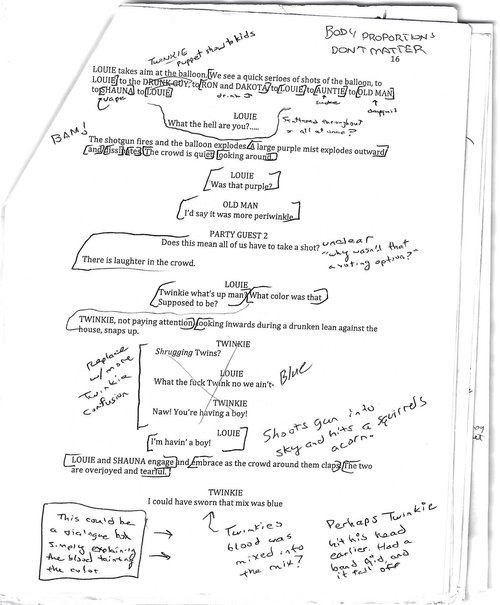 BODY PROPORTIONS
DON'T MATTER
16
TWINKIE
Puppet show to kids
LOUIE takes aim at the balloon. We see a quick serioes of shots of the balloon, to
LOUIE to the DRUNK GUY, to RON and DAKOTA to LOUIE to AUNTIE to OLD MAN
to SHAUNA to LOUIE.
vape
smoke
LOUIE
What the hell are you?.....
Scattered throughout
or all at once?
BAM!
The shotgun fires and the balloon explodes. A large purple mist explodes outward
and dissipates. The crowd is quiet looking around.
LOUIE
Was that purple?
OLD MAN
I'd say it was more periwinkle
PARTY GUEST 2
Does this mean all of us have to take a shot?
unclear
"why wasn't that
a voting option?"
There is laughter in the crowd.
LOUIE
Twinkie what's up man? What color was that
Supposed to be?
TWINKIE, not paying attention looking inwards during a drunken lean against the
house, snaps up.
Replace
w/ more
Twinkie
confusion
TWINKIE
Shrugging Twins?
LOUIE
What the fuck Twink no we ain't-
Blue
TWINKIE
Naw! You're having a boy!
LOUIE
I'm havin' a boy!
Shoots gun into
sky and hits a squirrels
acorn.
LOUIE and SHAUNA engage and embrace as the crowd around them claps. The two
are overjoyed and tearful.
TWINKIE
I could have sworn that mix was blue
This could be
a dialogue bit
simply explaining
the blood tainting
the color
Twinkies
blood was
mixed into
the mix?
Perhaps Twinkie
hit his head
earlier. Had a
band aid, and
it fell off